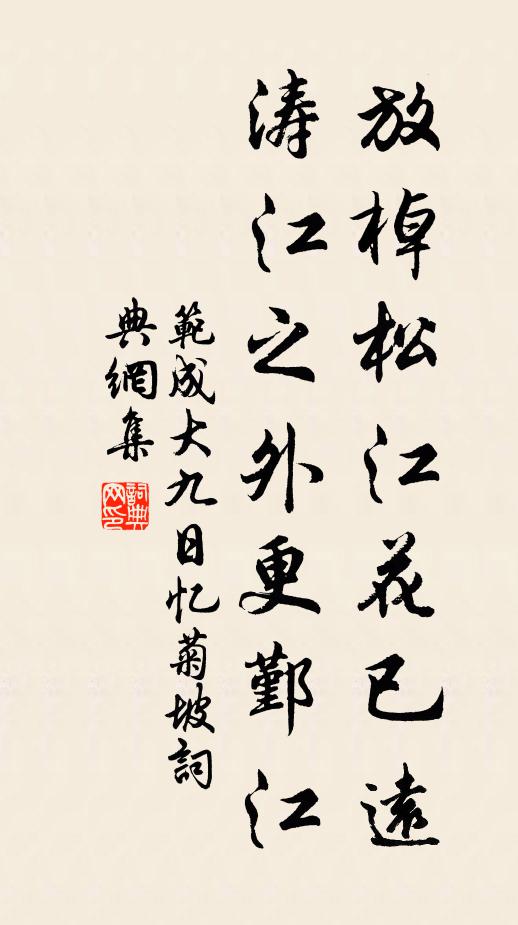 放棹松江花已遠
涛江之外更鄞江
範成大九日忆菊坡詞
典網集
詞典网印